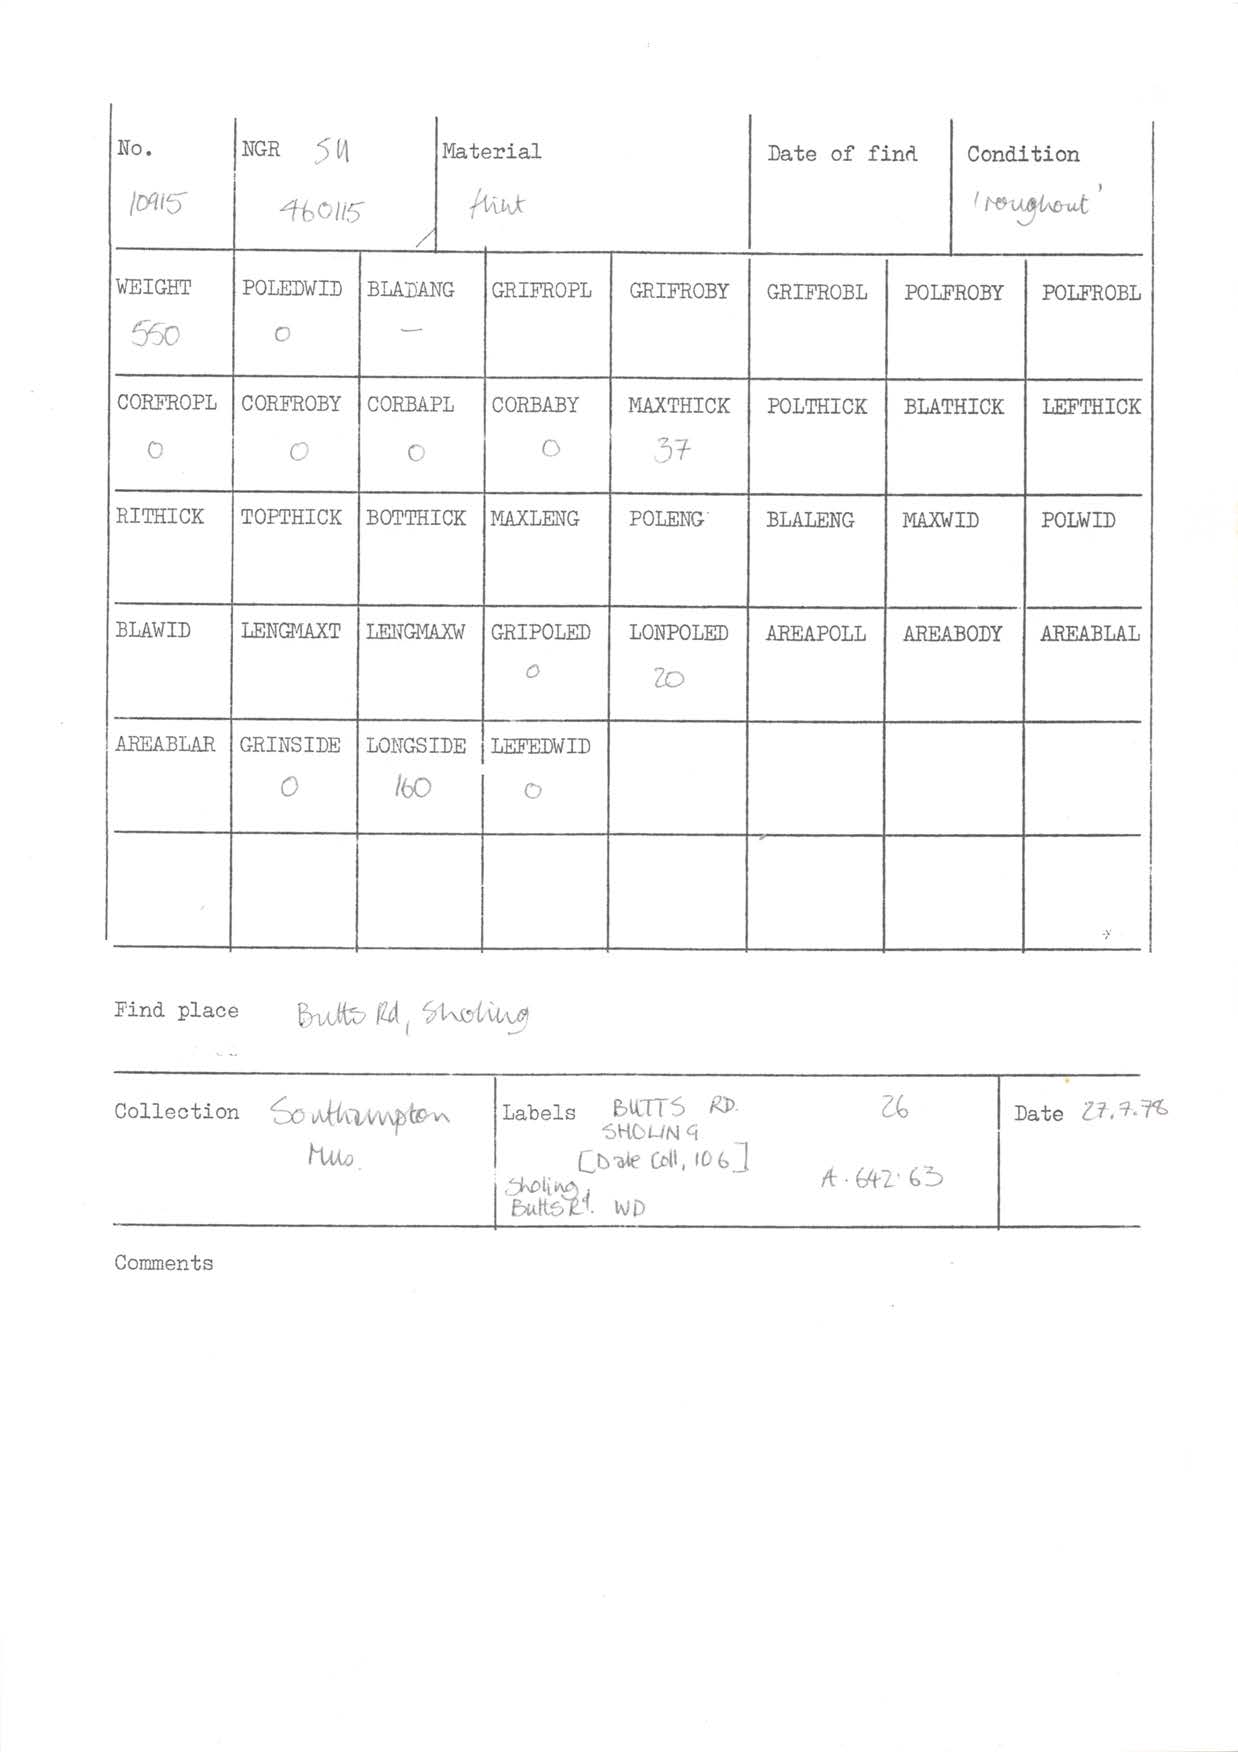 No. NGR SU Material Date of find Condition
10915 460115 flint 'roughout'
WEIGHT POLEDWID BLADANG GRIFROPL GRIFROBY GRIFROBL POLFROBY POLFROBL
550 0 —
CORFROPL CORFROBY CORBAPL CORBABY MAXTHICK POLTHICK BLATHICK LEFTHICK
0 0 0 0 37
RITHICK TOPTHICK BOTTHICK MAXLENG POLENG BLALENG MAXWID POLWID
BLAWID LENGMAXT LENGMAXW GRIPOLED LONPOLED AREAPOLL AREABODY AREABLAL
0 20
AREABLAR GRINSIDE LONGSIDE LEFEDWID
0 160 0
Find place Butts Rd, Sholing
Collection Southampton Mus.
Labels BUTTS RD. 26
SHOLING
[Dale Coll, 106]
A.642.63
Sholing
Butts Rd. WD
Date 27.7.78
Comments